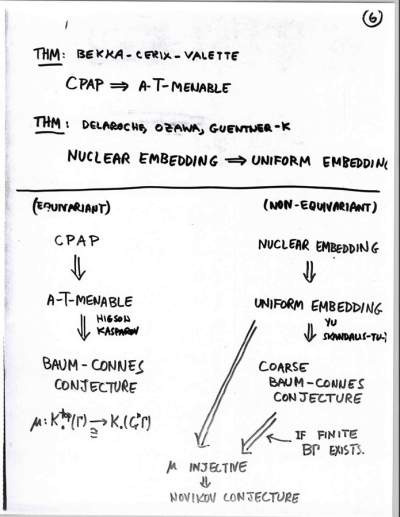 6
THM: BEKKA-CERIX-VALETTE
CPAP ⇒ A-T-MENABLE
THM: DELAROCHE, OZAWA, GUENTNER-K
NUCLEAR EMBEDDING ⇒ UNIFORM EMBEDDING
(EQUIVARIANT)
CPAP
⇓
A-T-MENABLE
⇓ HIGSON
KASPAROV
BAUM-CONNES
CONJECTURE
(NON-EQUIVARIANT)
NUCLEAR EMBEDDING
⇓
UNIFORM EMBEDDING
⇓ YU
SKANDALIS-TU-
COARSE
BAUM-CONNES
CONJECTURE
← IF FINITE
BΓ EXISTS.
μ INJECTIVE
⇓
NOVIKOV CONJECTURE